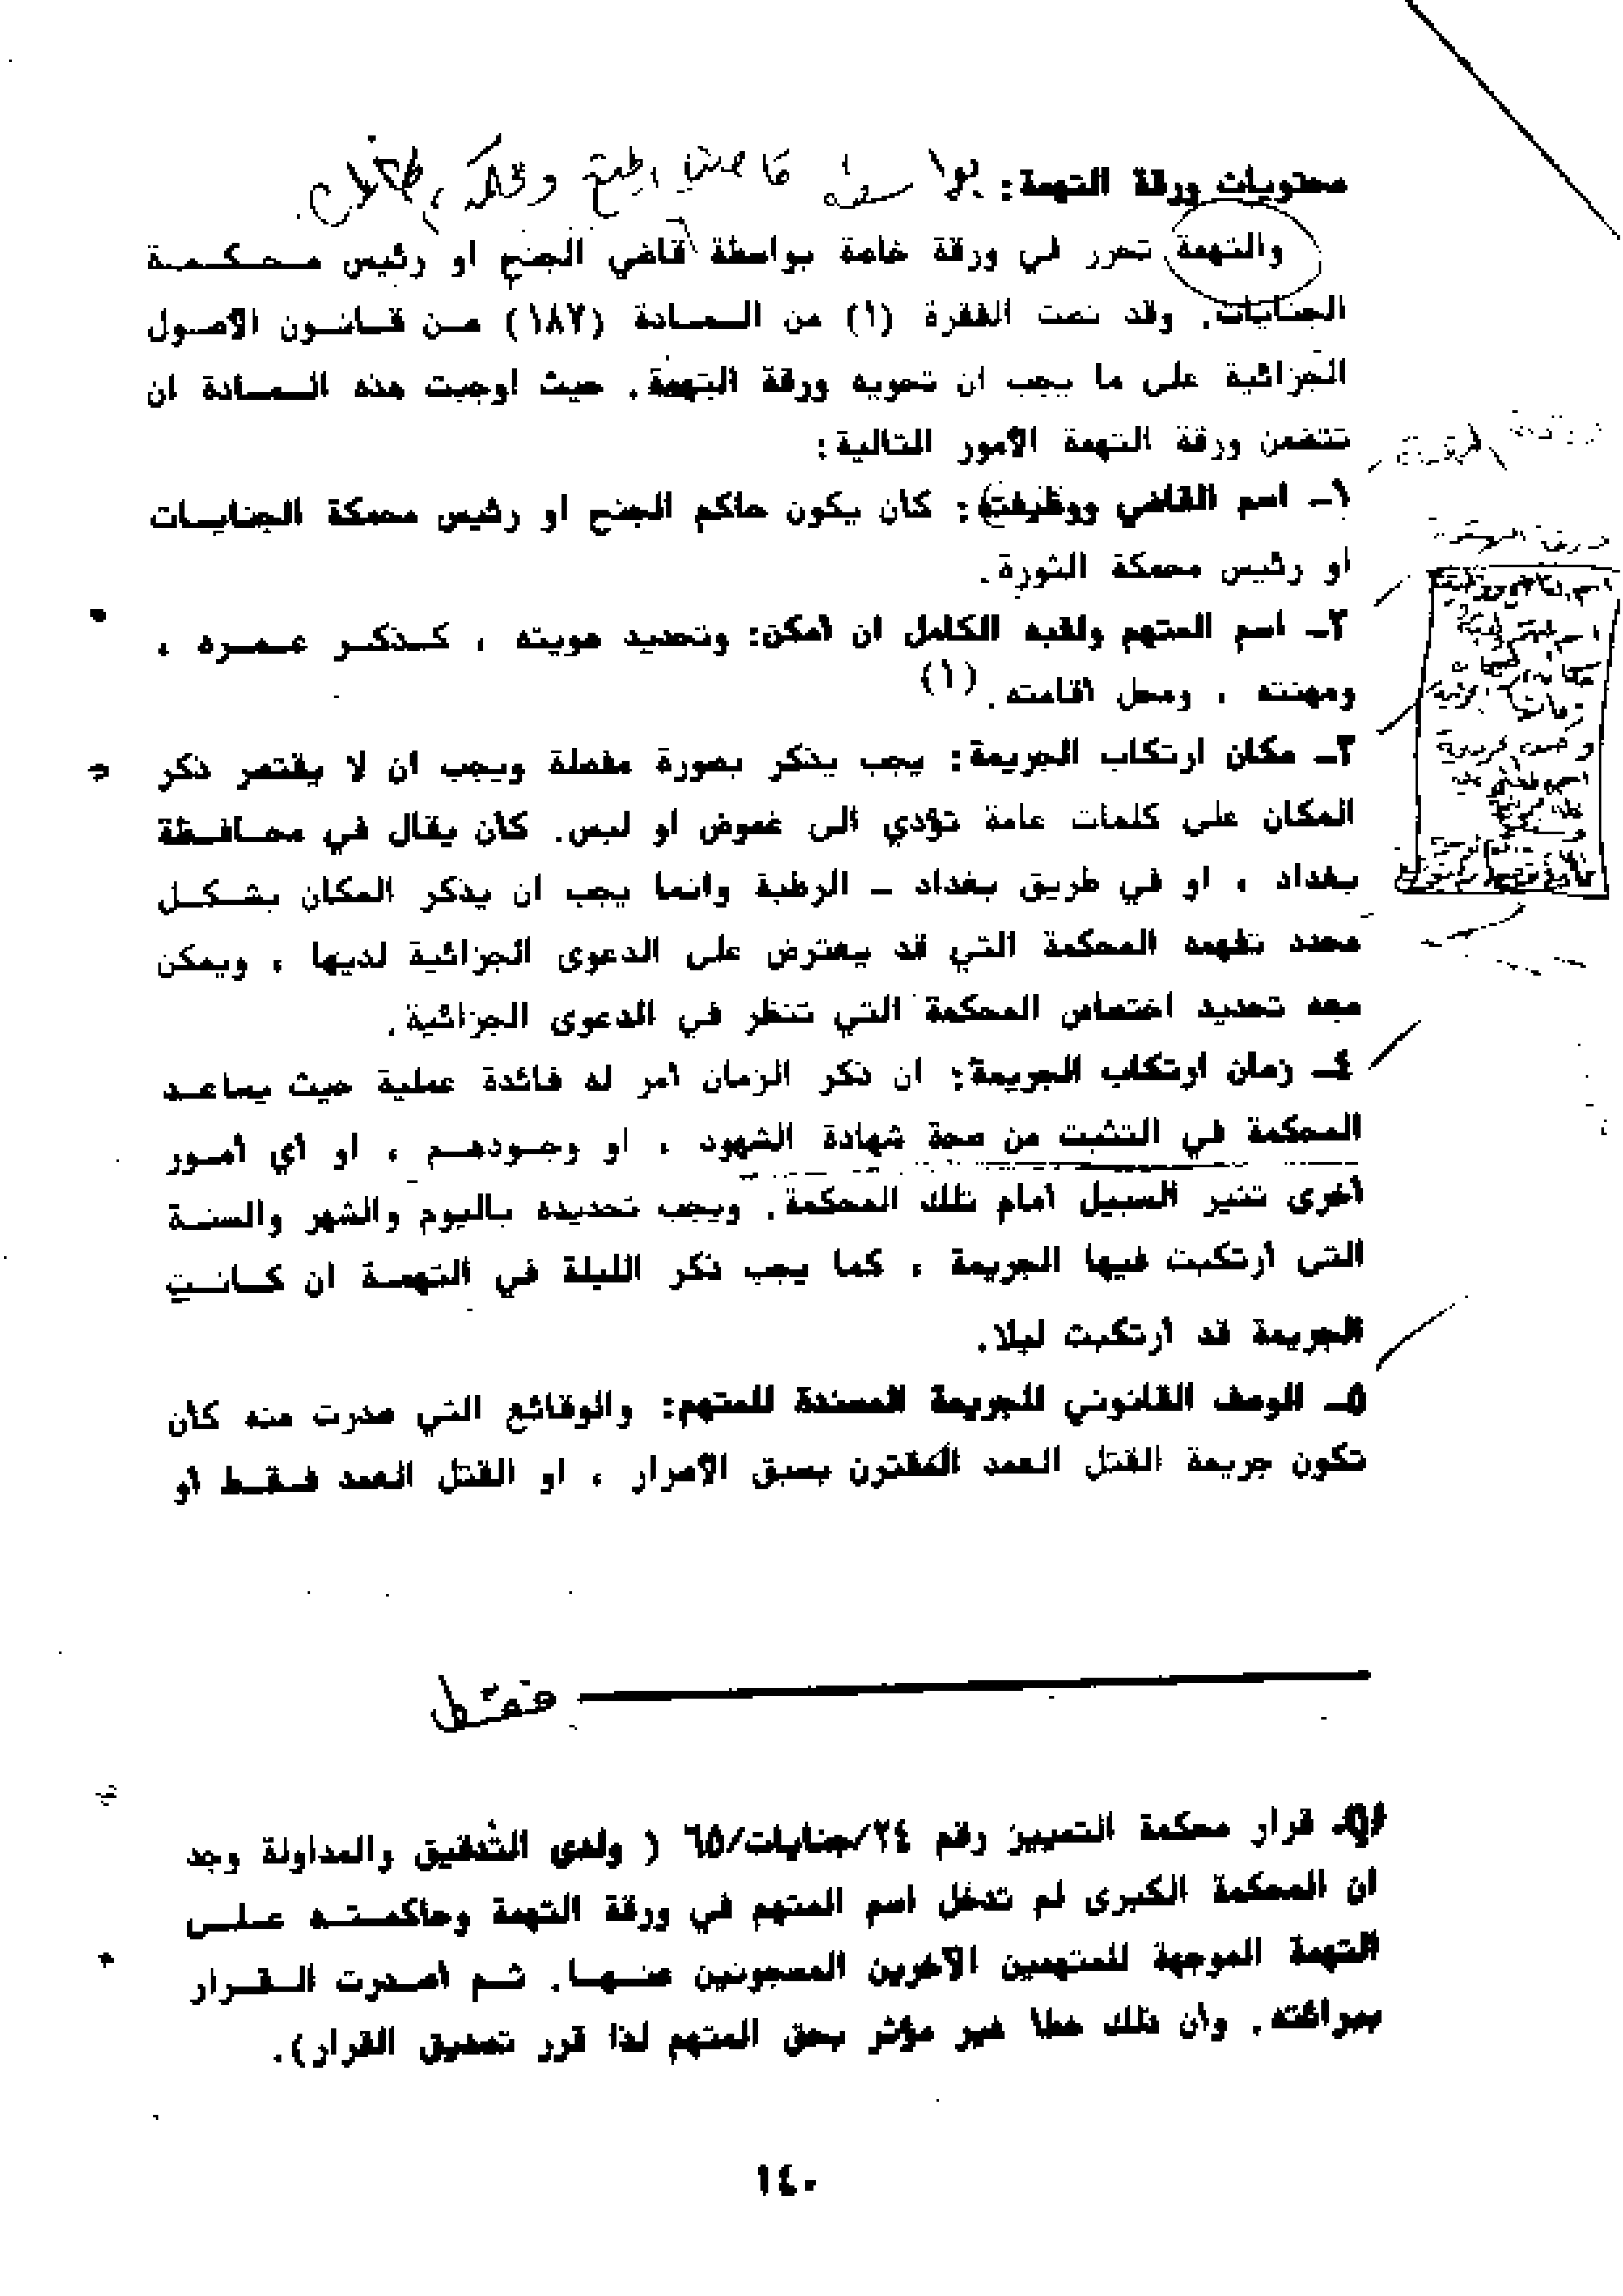 محتويات ورقة التهمة:
والتهمة تحرر في ورقة خاصة بواسطة قاضي الجنح او رئيس محكمة
الجنايات. وقد نصت الفقرة (١) من المادة (١٨٧) من قانون الاصول
الجزائية على ما يجب ان تحويه ورقة التهمة. حيث اوجبت هذه المادة ان
تتضمن ورقة التهمة الأمور التالية:
١- اسم القاضي ووظيفته: كأن يكون حاكم الجنح او رئيس محكمة الجنايات
او رئيس محكمة الثورة.
٢- اسم المتهم ولقبه الكامل ان أمكن: وتحديد هويته ، كذكر عمره ،
ومهنته ، ومحل اقامته. (١)
٣- مكان ارتكاب الجريمة: يجب يذكر بصورة مفصلة ويجب ان لا يقتصر ذكر
المكان على كلمات عامة تؤدي الى غموض او لبس. كأن يقال في محافظة
بغداد ، او في طريق بغداد - الرطبة وانما يجب ان يذكر المكان بشكل
محدد تفهمه المحكمة التي قد يعترض على الدعوى الجزائية لديها ، ويمكن
معه تحديد اختصاص المحكمة التي تنظر في الدعوى الجزائية.
٤- زمان ارتكاب الجريمة: ان ذكر الزمان أمر له فائدة عملية حيث يساعد
المحكمة في التثبت من صحة شهادة الشهود ، او وجودهم ، او أي أمور
أخرى تنير السبيل أمام تلك المحكمة. ويجب تحديده باليوم والشهر والسنة
التي أرتكبت فيها الجريمة ، كما يجب ذكر الليلة في التهمة ان كانت
الجريمة قد أرتكبت ليلا.
٥- الوصف القانوني للجريمة المسندة للمتهم: والوقائع التي صدرت منه كأن
تكون جريمة القتل العمد المقترن بسبق الأصرار ، او القتل العمد فقط أو
قرار محكمة التمييز رقم ٢٤/جنايات/٦٥ ( ولدى التدقيق والمداولة وجد
ان المحكمة الكبرى لم تدخل اسم المتهم في ورقة التهمة وحاكمته على
التهمة الموجهة للمتهمين الآخرين المسجونين عنها. ثم أصدرت القرار
ببرائته. وأن ذلك خطا غير مؤثر بحق المتهم لذا قرر تصديق القرار).
١٤٠